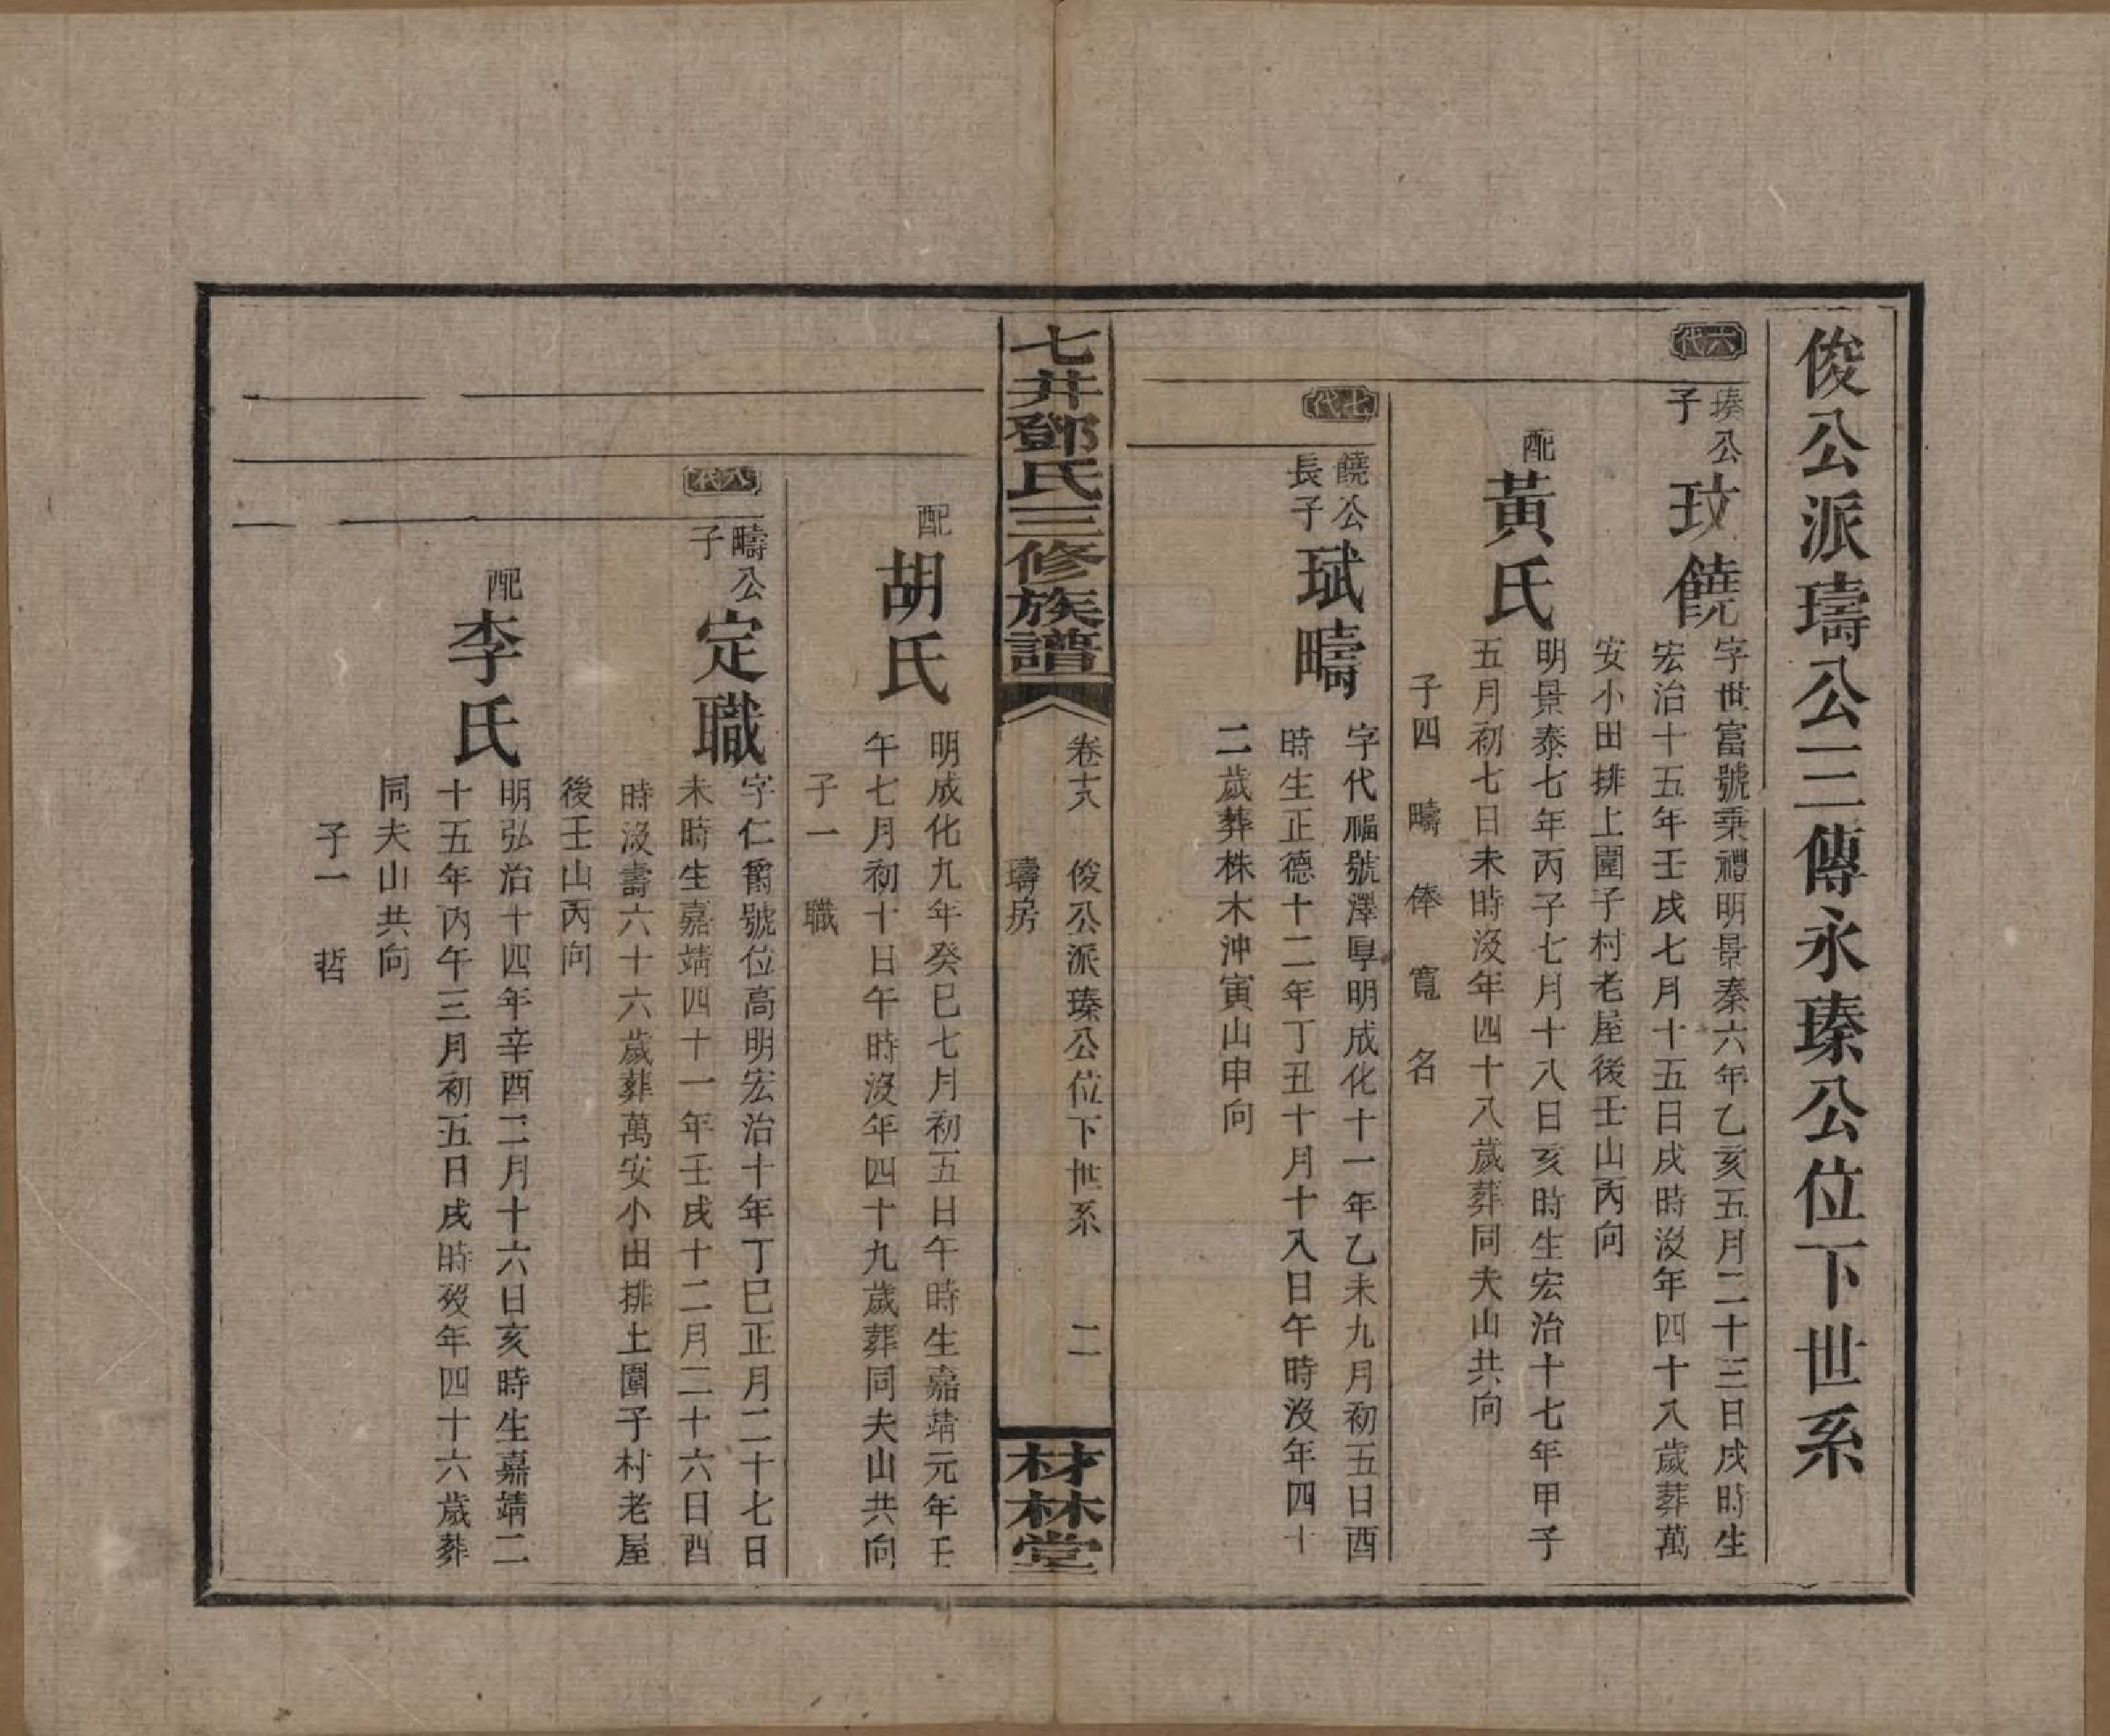 俊公派璹公三傳永瑧公位下世系
六代
瑧公
子
玟饒
字世富號秉禮明景泰六年乙亥五月二十三日戌時生
宏治十五年壬戌七月十五日戌時沒年四十八歲葬萬
安小田排上圍子村老屋後壬山丙向
配
黃氏
明景泰七年丙子七月十八日亥時生宏治十七年甲子
五月初七日未時沒年四十八歲葬同夫山共向
子四　疇　俸　寬　名
七代
饒公
長子
珷疇
字代福號澤厚明成化十一年乙未九月初五日酉
時生正德十二年丁丑十月十八日午時沒年四十
二歲葬株木沖寅山申向
七井鄧氏三修族譜
卷十八　俊公派瑧公位下世系　二
璹房
材林堂
配
胡氏
明成化九年癸巳七月初五日午時生嘉靖元年壬
午七月初十日午時沒年四十九歲葬同夫山共向
子一　職
八代
疇公
子
定職
字仁爵號位高明宏治十年丁巳正月二十七日
未時生嘉靖四十一年壬戌十二月二十六日酉
時沒壽六十六歲葬萬安小田排上圍子村老屋
後壬山丙向
配
李氏
明弘治十四年辛酉二月十六日亥時生嘉靖二
十五年丙午三月初五日戌時歿年四十六歲葬
同夫山共向
子一　哲